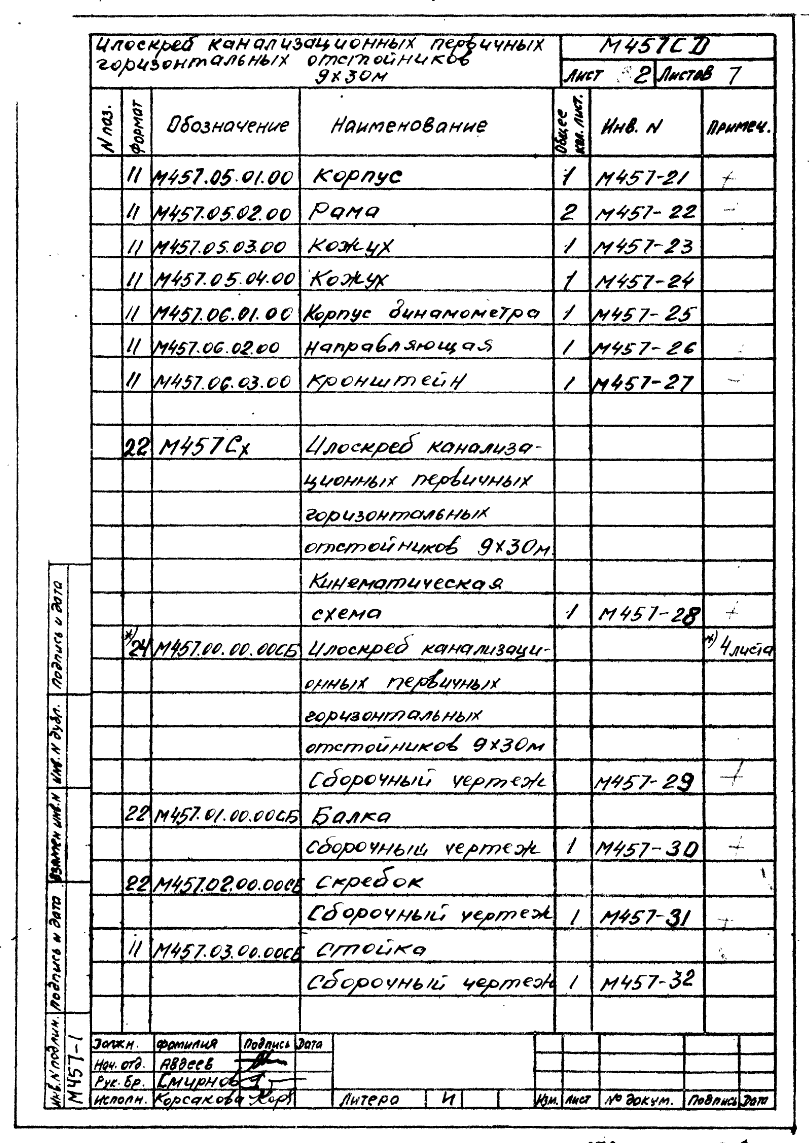 Илоскреб канализационных первичных
горизонтальных отстойников
9х30м
М457СД
Лист 2 Листов 7
N поз. Формат Обозначение Наименование Общее кол. лист. Инв. N Примеч.
11 М457.05.01.00 Корпус 1 М457-21 +
11 М457.05.02.00 Рама 2 М457-22 -
11 М457.05.03.00 Кожух 1 М457-23
11 М457.05.04.00 Кожух 1 М457-24
11 М457.06.01.00 Корпус динамометра 1 М457-25
11 М457.06.02.00 Направляющая 1 М457-26
11 М457.06.03.00 Кронштейн 1 М457-27 -
22 М457Сх Илоскреб канализа-
ционных первичных
горизонтальных
отстойников 9х30м.
Кинематическая
схема 1 М457-28 +
*)24 М457.00.00.00СБ Илоскреб канализаци- *) 4 листа
онных первичных
горизонтальных
отстойников 9х30м
Сборочный чертеж М457-29 +
22 М457.01.00.00СБ Балка
Сборочный чертеж 1 М457-30 +
22 М457.02.00.00СБ Скребок
Сборочный чертеж 1 М457-31 +
11 М457.03.00.00СБ Стойка
Сборочный чертеж 1 М457-32
Инв. N подлин. Подпись и дата Взамен инв. N Инв. N дубл. Подпись и дата
М457-1
Должн. Фамилия Подпись Дата
Нач. отд. Авдеев
Рук. бр. Смирнов
Исполн. Корсакова Корс
Литера И
Изм. Лист № докум. Подпись Дата